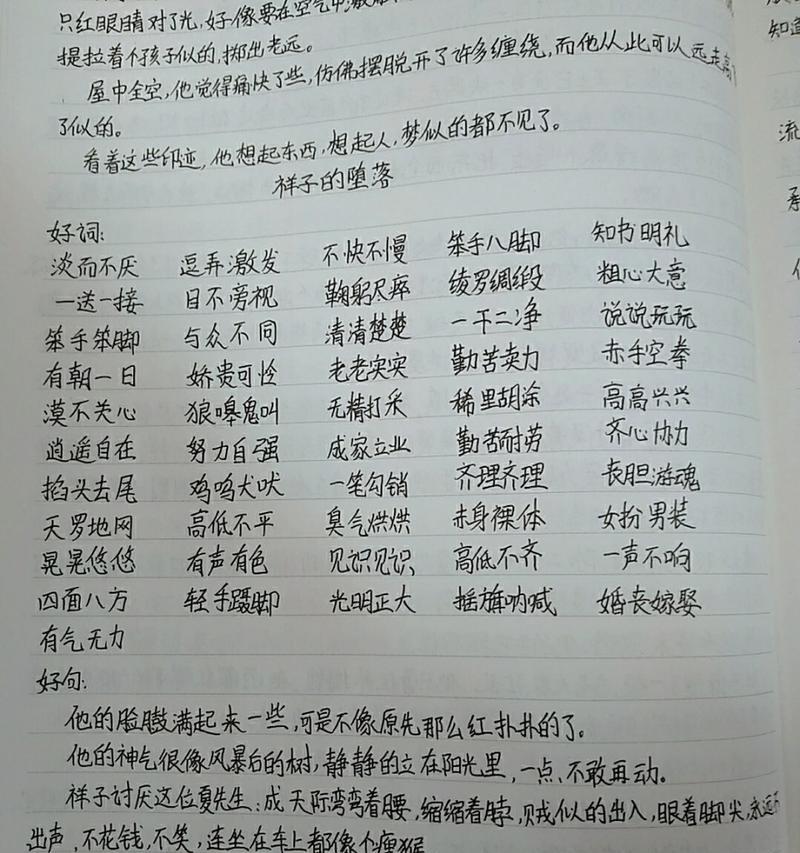 只红眼睛对了光,好像要在空气中激
提拉着个孩子似的,掷出老远。
屋中全空,他觉得痛快了些,仿佛摆脱开了许多缠绕,而他从此可以远走高
了似的。
看着这些印迹,他想起东西,想起人,梦似的都不见了。
祥子的堕落
好词:
淡而不厌 逗弄激发 不快不慢 笨手八脚 知书明礼
一送一接 目不旁视 鞠躬尽瘁 绫罗绸缎 粗心大意
笨手笨脚 与众不同 清清楚楚 一干二净 说说玩玩
有朝一日 娇贵可怜 老老实实 勤苦卖力 赤手空拳
漠不关心 狼嗥鬼叫 无精打采 稀里胡涂 高高兴兴
逍遥自在 努力自强 成家立业 勤苦耐劳 齐心协力
掐头去尾 鸡鸣犬吠 一笔勾销 齐理齐理 丧胆游魂
天罗地网 高低不平 臭气烘烘 赤身裸体 女扮男装
晃晃悠悠 有声有色 见识见识 高低不齐 一声不响
四面八方 轻手蹑脚 光明正大 摇旗呐喊 婚丧嫁娶
有气无力
好句:
他的脸臌满起来一些,可是不像原先那么红扑扑的了。
他的神气很像风暴后的树,静静的立在阳光里,一点不敢再动。
祥子讨厌这位夏先生:成天际弯弯着腰,缩缩着脖,贼似的出入,眼看脚尖,永远不
出声,不花钱,不笑,连坐在车上都像个瘦猴
知道
流